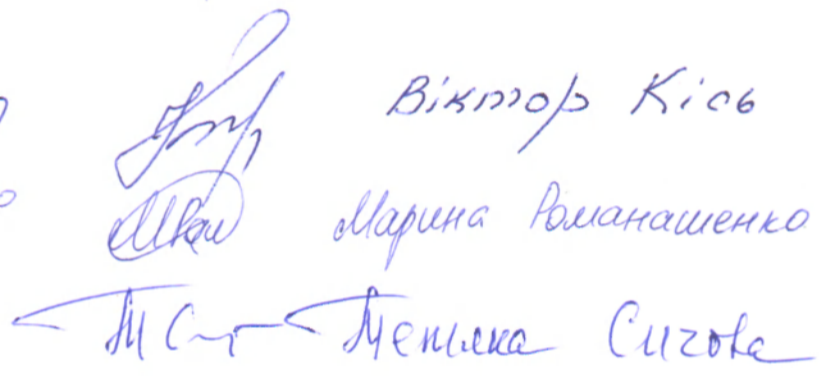 Віктор Кісь
Марина Романашенко
Тетяна Сичова